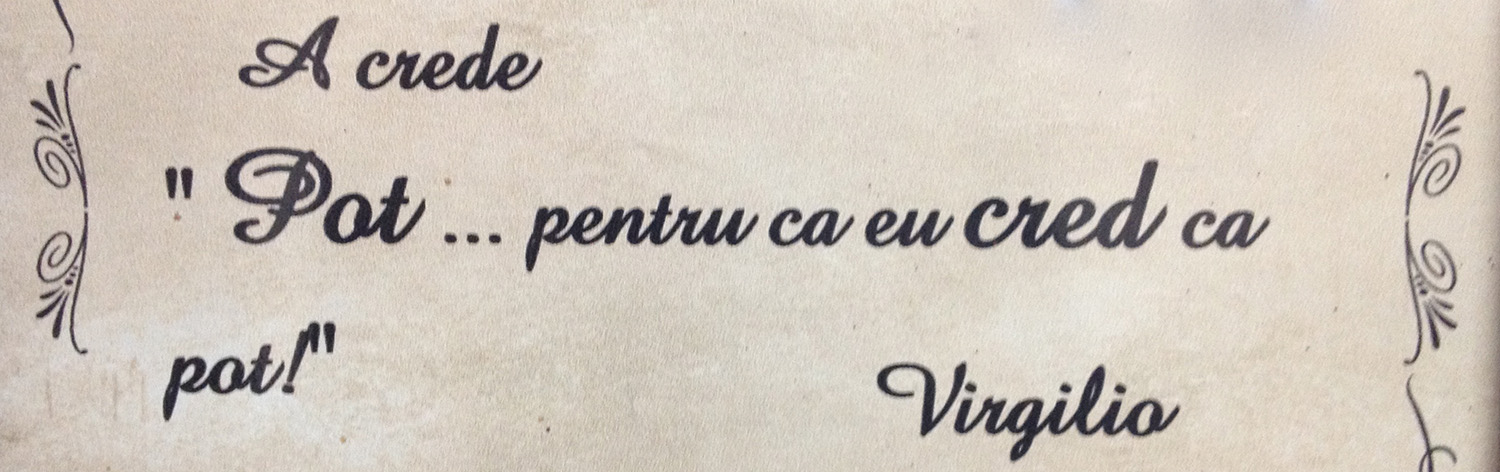 A crede
" Pot ... pentru ca eu cred ca
pot!"
Virgilio